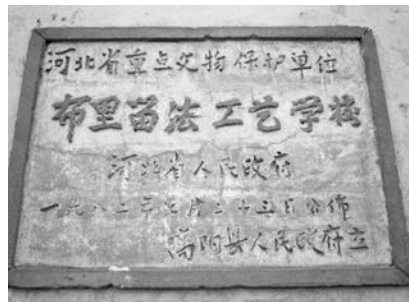 河北省重点文物保护单位
布里留法工艺学校
河北省人民政府
一九八二年七月二十三日公佈
高阳县人民政府立